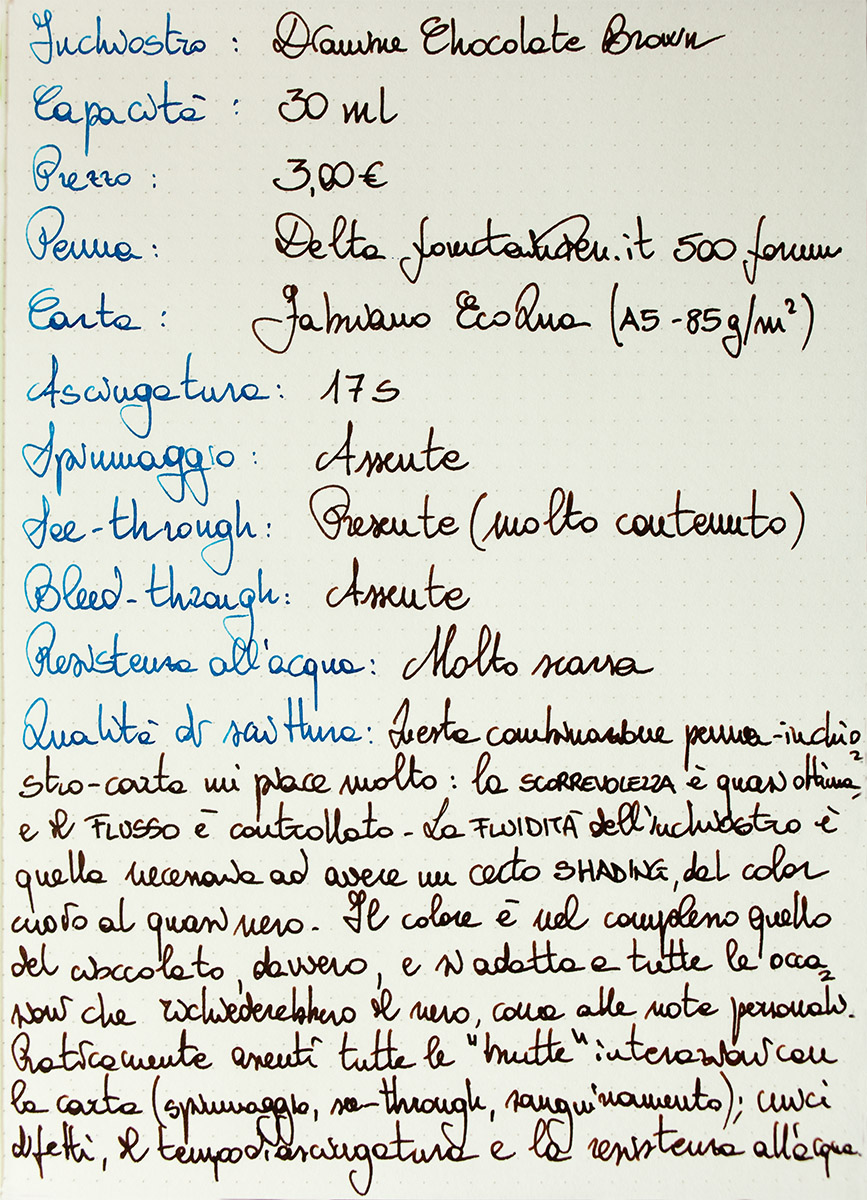 Inchiostro : Diamine Chocolate Brown
Capacità : 30 ml
Prezzo : 3,00€
Penna : Delta fountainpen.it 500 forum
Carta : Fabriano EcoQua (A5 - 85g/m²)
Asciugatura: 17s
Spiumaggio : Assente
See-through: Presente (molto contenuto)
Bleed-through: Assente
Resistenza all'acqua: Molto scarsa
Qualità di scrittura: Questa combinazione penna-inchio
stro-carta mi piace molto: la SCORREVOLEZZA è quasi ottima,
e il FLUSSO è controllato - La FLUIDITÀ dell'inchiostro è
quella necessaria ad avere un certo SHADING, dal color
cuoio al quasi nero. Il colore è nel complesso quello
del cioccolato, davvero, e si adatta a tutte le occa
sioni che richiederebbero il nero, come alle note personali.
Praticamente assenti tutte le "brutte" interazioni con
la carta (spiumaggio, see-through, sanguinamento); unici
difetti, il tempo di asciugatura e la resistenza all'acqua.